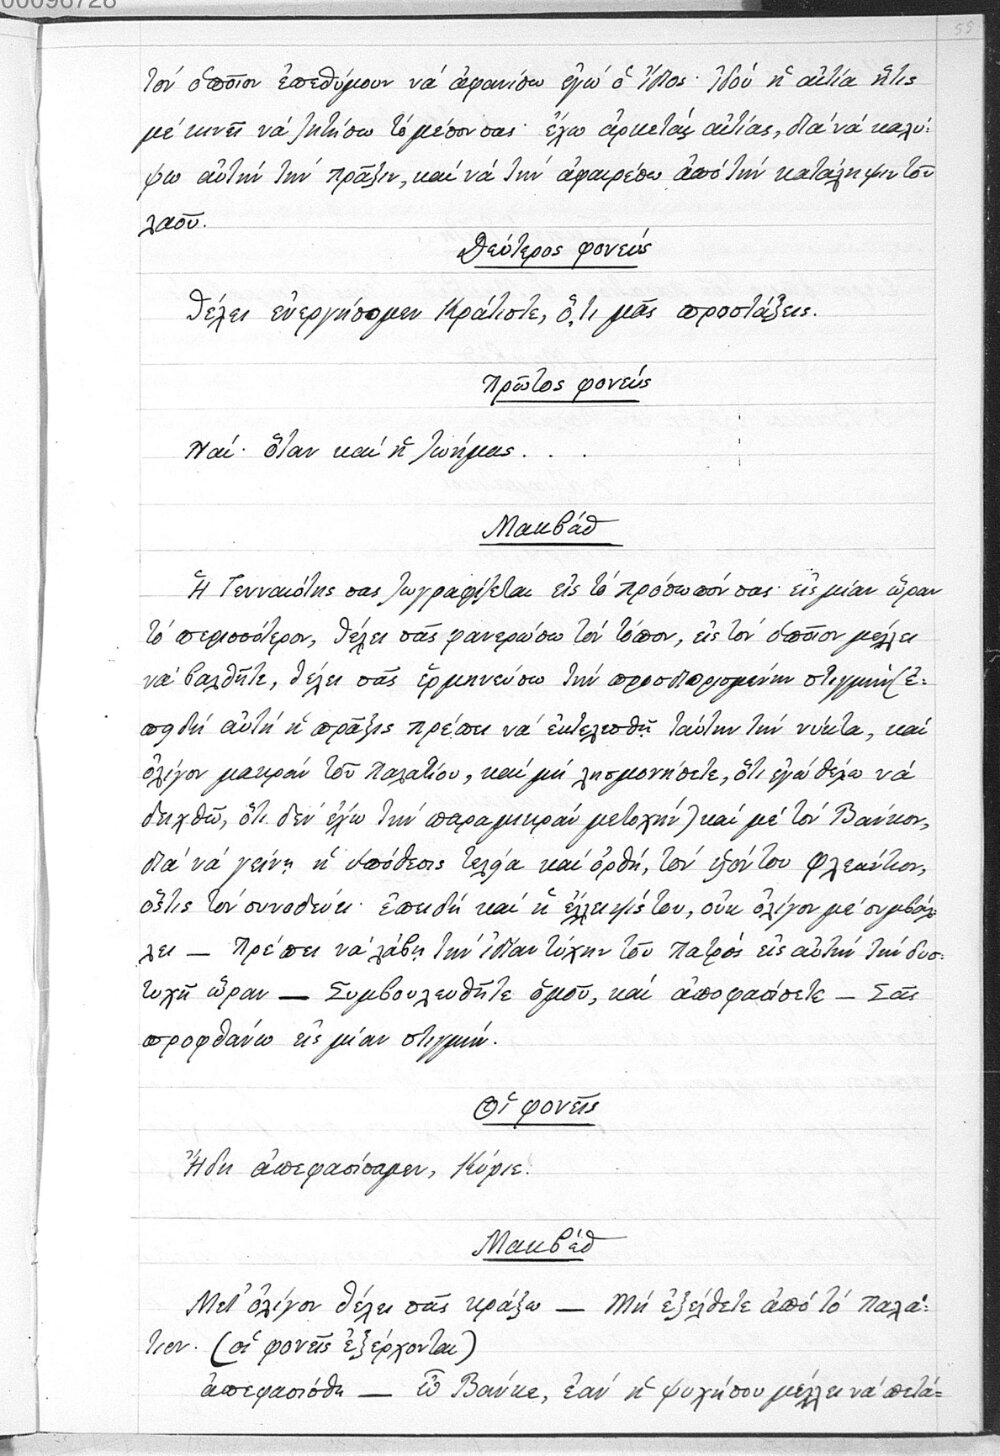 00096728
55
τόν ὁποῖον ἐπεθύμουν νά ἀφανίσω ἐγώ ὁ ἴδιος· ἰδού ἡ αἰτία ἥτις
μέ κινεῖ νά ζητήσω τό μέσον σας· ἔχω ἀρκετάς αἰτίας, διά νά καλύ-
ψω αὐτήν τήν πρᾶξιν, καί νά τήν ἀφαιρέσω ἀπό τήν κατάληψιν τοῦ
λαοῦ.
Δεύτερος φονεύς
Θέλει ἐνεργήσομεν Κράτιστε, ὅ,τι μᾶς προστάξεις.
Πρῶτος φονεύς
Ναί· ὅταν καί ἡ ζωήμας . . .
Μακβάθ
Ἡ Γενναιότης σας ζωγραφίζεται εἰς τό πρόσωπόν σας· εἰς μίαν ὥραν
τό περισσότερον, θέλει σᾶς φανερώσω τόν τόπον, εἰς τόν ὁποῖον μέλλει
νά βαλθῆτε, θέλει σᾶς ἑρμηνεύσω τήν προσδιορισμένην στιγμήν (ἐ-
πειδή αὐτή ἡ πρᾶξις πρέπει νά ἐκτελεσθῇ ταύτην τήν νύκτα, καί
ὀλίγον μακράν τοῦ Παλατίου, καί μή λησμονήσετε, ὅτι ἐγώ θέλω νά
δειχθῶ, ὅτι δέν ἔχω τήν παραμικράν μετοχήν) καί μέ τόν Βάνκον,
διά νά γείνῃ ἡ ὑπόθεσις τελεία καί ὀρθή, τόν υἱόν του Φλεάντιον,
ὅστις τόν συνοδεύει· ἐπειδή καί ἡ ἔλλειψίς του, οὐκ ὀλίγον μέ συμβάλ-
λει — Πρέπει νά λάβῃ τήν ἰδίαν τύχην τοῦ Πατρός εἰς αὐτήν τήν δυσ-
τυχῆ ὥραν — Συμβουλευθῆτε ὁμοῦ, καί ἀποφασίσετε — Σᾶς
προφθάνω εἰς μίαν στιγμήν.
Οἱ φονεῖς
Ἤδη ἀπεφασίσαμεν, Κύριε.
Μακβέθ
Μετ' ὀλίγον θέλει σᾶς κράξω — Μή ἐξέλθετε ἀπό τό παλά-
τιον. (οἱ φονεῖς ἐξέρχονται)
ἀπεφασίσθη — ὦ Βάνκε, ἐάν ἡ ψυχήσου μέλλει νά πετά-